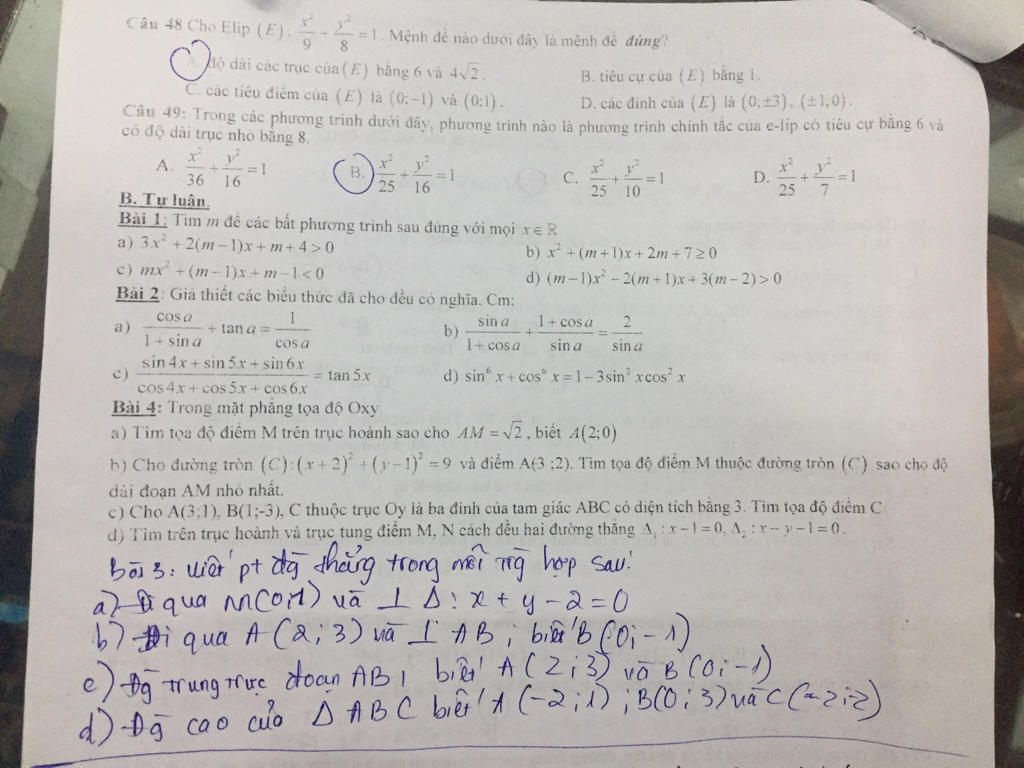 Câu 48 Cho Elip (E): x²/9 + y²/8 = 1. Mệnh đề nào dưới đây là mệnh đề đúng?
A. độ dài các trục của (E) bằng 6 và 4√2. B. tiêu cự của (E) bằng 1.
C. các tiêu điểm của (E) là (0;−1) và (0;1). D. các đỉnh của (E) là (0;±3), (±1;0).
Câu 49: Trong các phương trình dưới đây, phương trình nào là phương trình chính tắc của e-lip có tiêu cự bằng 6 và
có độ dài trục nhỏ bằng 8.
A. x²/36 + y²/16 = 1 B. x²/25 + y²/16 = 1 C. x²/25 + y²/10 = 1 D. x²/25 + y²/7 = 1
B. Tự luận.
Bài 1: Tìm m để các bất phương trình sau đúng với mọi x ∈ ℝ
a) 3x² + 2(m−1)x + m + 4 > 0 b) x² + (m+1)x + 2m + 7 ≥ 0
c) mx² + (m−1)x + m − 1 < 0 d) (m−1)x² − 2(m+1)x + 3(m−2) > 0
Bài 2: Giả thiết các biểu thức đã cho đều có nghĩa. Cm:
a) cos a/(1 + sin a) + tan a = 1/cos a b) sin a/(1 + cos a) + (1 + cos a)/sin a = 2/sin a
c) (sin 4x + sin 5x + sin 6x)/(cos 4x + cos 5x + cos 6x) = tan 5x d) sin⁶ x + cos⁶ x = 1 − 3sin² x cos² x
Bài 4: Trong mặt phẳng tọa độ Oxy
a) Tìm tọa độ điểm M trên trục hoành sao cho AM = √2, biết A(2;0)
b) Cho đường tròn (C): (x+2)² + (y−1)² = 9 và điểm A(3 ;2). Tìm tọa độ điểm M thuộc đường tròn (C) sao cho độ
dài đoạn AM nhỏ nhất.
c) Cho A(3;1), B(1;-3), C thuộc trục Oy là ba đỉnh của tam giác ABC có diện tích bằng 3. Tìm tọa độ điểm C
d) Tìm trên trục hoành và trục tung điểm M, N cách đều hai đường thẳng Δ₁ : x − 1 = 0, Δ₂ : x − y − 1 = 0.
bài 3: viết pt đg thẳng trong mỗi trg hợp sau:
a) Đi qua và ⊥ Δ: x + y − 2 = 0
b) Đi qua A (2; 3) và ⊥ AB, biết B (0; −1)
c) Đg trung trực đoạn AB, biết A (2; 3) và B (0; −1)
d) Đg cao của Δ ABC biết A (−2; 1); B(0; 3) và C(−2; 2)